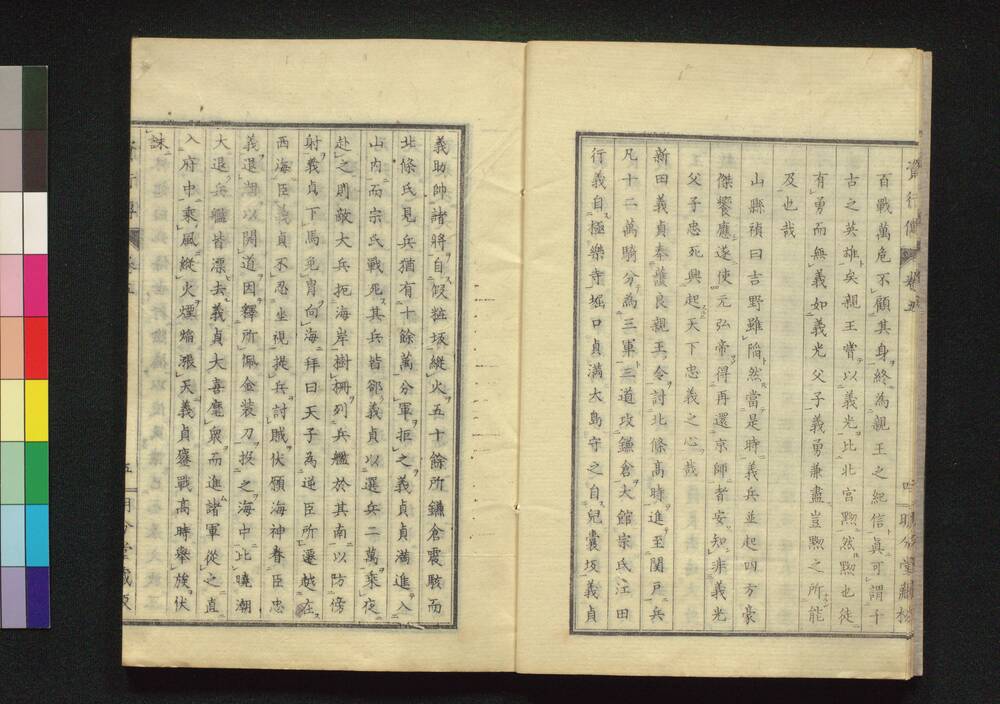 百戰萬危不顧其身終為親王之紀信眞可謂千
古之英雄矣親王嘗以義光比北宮黝然黝也徒
有勇而無義如義光父子義勇兼盡豈黝之所能
及也哉
山縣禎曰吉野雖陥然當是時義兵並起四方豪
傑響應遂使元弘帝得再還京師者安知非義光
父子忠死興起天下忠義之心哉
新田義貞奉護良親王令討北條高時進至関戸兵
凡十二萬騎分為三軍三道攻鎌倉大館宗氏江田
行義自極樂寺堀口貞滿大島守之自兒囊坂義貞
義助帥諸將自假粧坂縱火五十餘所鎌倉震駭而
北條氏見兵猶有十餘萬分軍拒之義貞貞滿進入
山内而宗氏戰死其兵皆郤義貞以選兵二萬乘夜
赴之則敵大兵扼海岸樹柵列兵艦於其南以防傍
射義貞下馬免冑向海拜曰天子為逆臣所遷越在
西海臣義貞不忍坐視提兵討賊伏願海神眷臣忠
義退潮以開道因釋所佩金装刀投之海中比曉潮
大退兵艦皆漂去義貞大喜麾衆而進諸軍從之直
入府中乘風縱火煙焔漲天義貞鏖戰高時舉族伏
誅